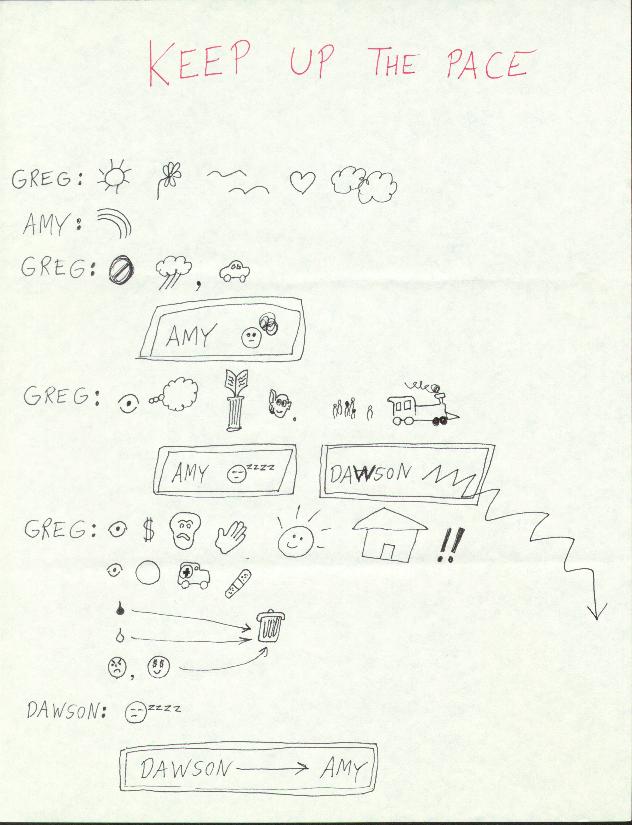 KEEP UP THE PACE
GREG:
AMY:
GREG: ,
AMY
GREG: .
AMY zzzz
DAWSON
GREG: $ !!
,
DAWSON: zzzz
DAWSON → AMY